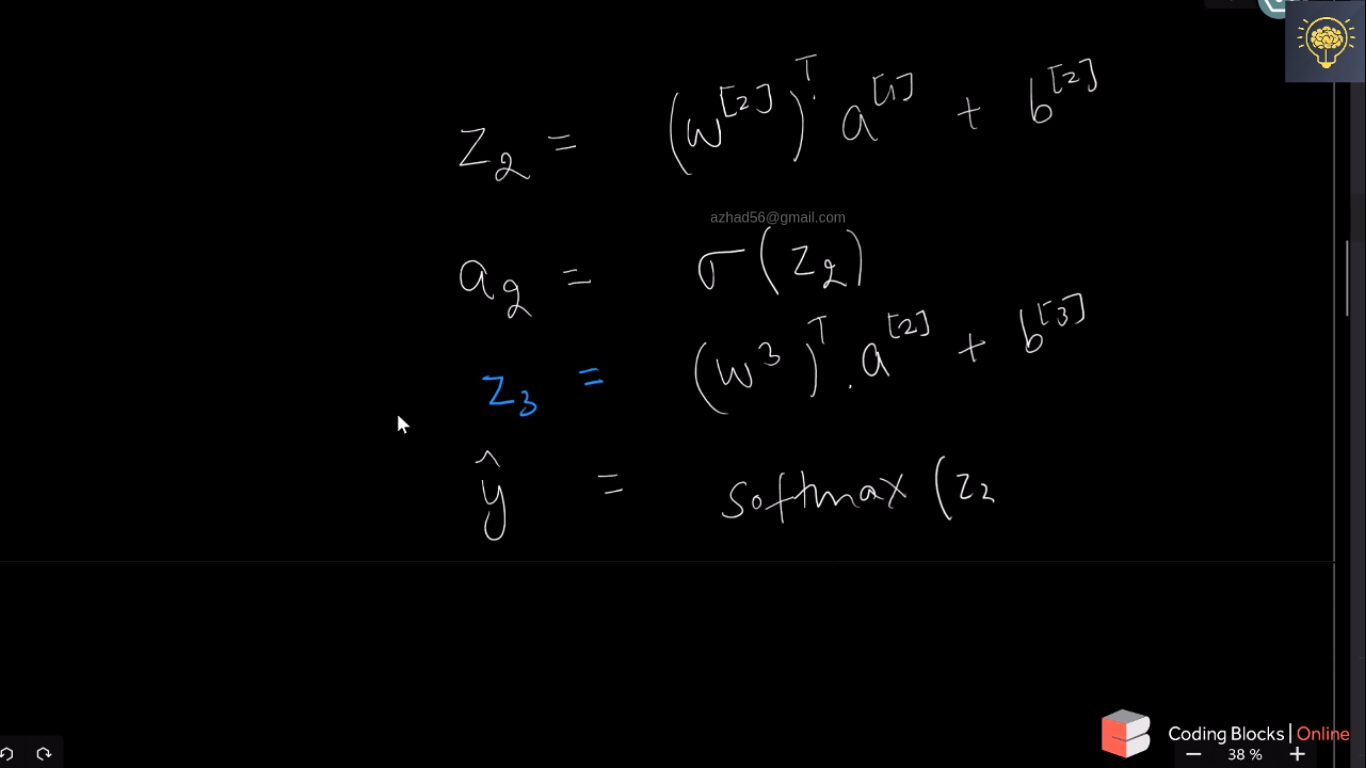 z₂ = (w^[2])^T. a^[1] + b^[2]
azhad56@gmail.com
a₂ = σ(z₂)
z₃ = (w³)^T . a^[2] + b^[3]
ŷ = softmax (z₂
Coding Blocks | Online
38 %